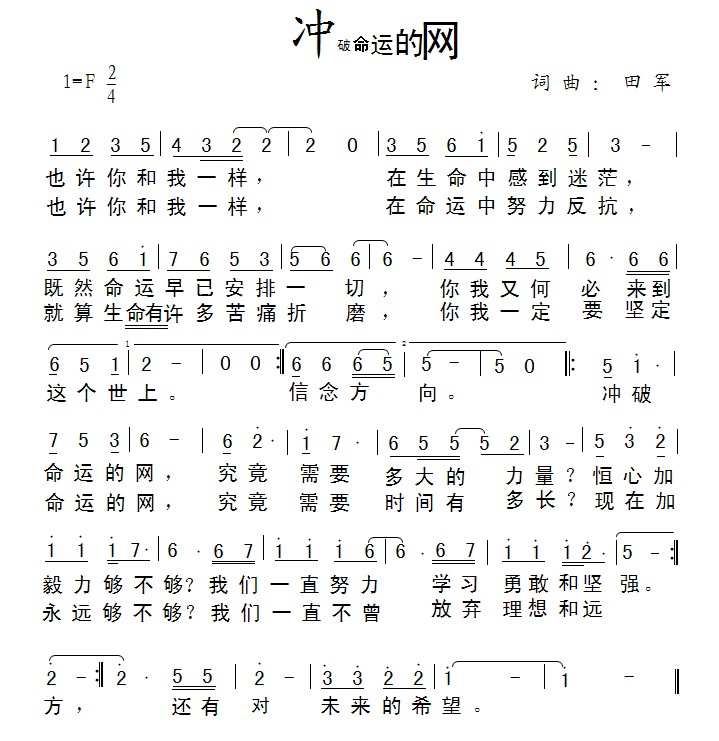 冲破命运的网
1=F 2/4
词曲：田军
1 2 3 5 | 4 3 2 2 | 2 0 | 3 5 6 1 | 5 2 5 | 3 - |
也许你和我一样， 在生命中感到迷茫，
也许你和我一样， 在命运中努力反抗，
3 5 6 1 | 7 6 5 3 | 5 6 6 | 6 - | 4 4 4 5 | 6 · 6 6 |
既然命运早已安排一 切， 你我又何 必 来到
就算生命有许多苦痛折 磨， 你我一定 要 坚定
1 2
6 5 1 | 2 - | 0 0 :| 6 6 6 5 | 5 - | 5 0 |: 5 1 · |
这个世上。 信念方 向。 冲破
7 5 3 | 6 - | 6 2 · | 1 7 · | 6 5 5 5 2 | 3 - | 5 3 2 |
命运的网， 究竟 需要 多大的 力量？恒心加
命运的网， 究竟 需要 时间有 多长？现在加
1 1 1 7 · | 6 · 6 7 | 1 1 1 6 | 6 · 6 7 | 1 1 1 2 · | 5 - :|
毅力够不够？我们一直努力 学习 勇敢和坚强。
永远够不够？我们一直不曾 放弃 理想和远
2 - :| 2 · 5 5 | 2 - | 3 3 2 2 | 1 - | 1 - ||
方， 还有 对 未来的希望。